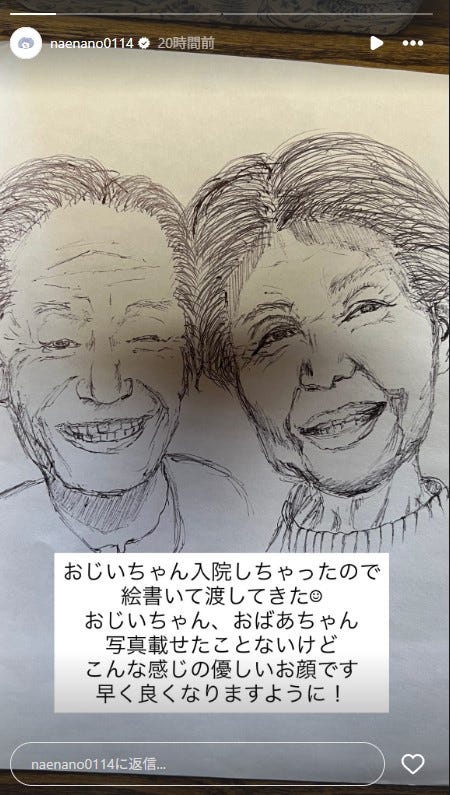 naenano0114 20時間前
おじいちゃん入院しちゃったので
絵書いて渡してきた☺
おじいちゃん、おばあちゃん
写真載せたことないけど
こんな感じの優しいお顔です
早く良くなりますように！
naenano0114に返信...